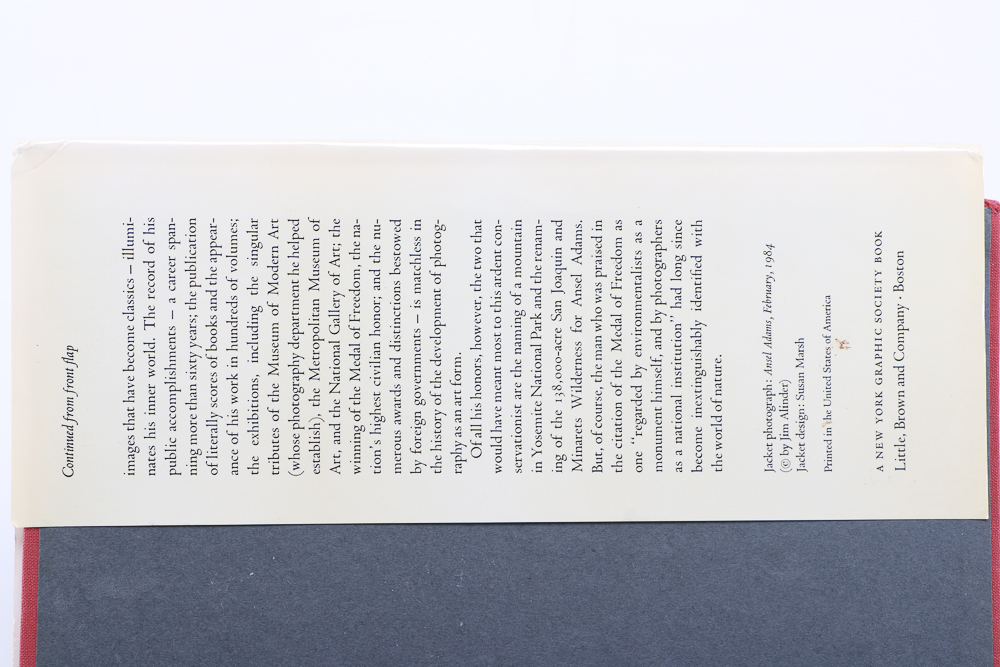 Continued from front flap
images that have become classics – illumi-
nates his inner world. The record of his
public accomplishments – a career span-
ning more than sixty years; the publication
of literally scores of books and the appear-
ance of his work in hundreds of volumes;
the exhibitions, including the singular
tributes of the Museum of Modern Art
(whose photography department he helped
establish), the Metropolitan Museum of
Art, and the National Gallery of Art; the
winning of the Medal of Freedom, the na-
tion's highest civilian honor; and the nu-
merous awards and distinctions bestowed
by foreign governments – is matchless in
the history of the development of photog-
raphy as an art form.
Of all his honors, however, the two that
would have meant most to this ardent con-
servationist are the naming of a mountain
in Yosemite National Park and the renam-
ing of the 138,000-acre San Joaquin and
Minarets Wilderness for Ansel Adams.
But, of course, the man who was praised in
the citation of the Medal of Freedom as
one “regarded by environmentalists as a
monument himself, and by photographers
as a national institution” had long since
become inextinguishably identified with
the world of nature.
Jacket photograph: Ansel Adams, February, 1984
(© by Jim Alinder)
Jacket design: Susan Marsh
Printed in the United States of America
A NEW YORK GRAPHIC SOCIETY BOOK
Little, Brown and Company · Boston